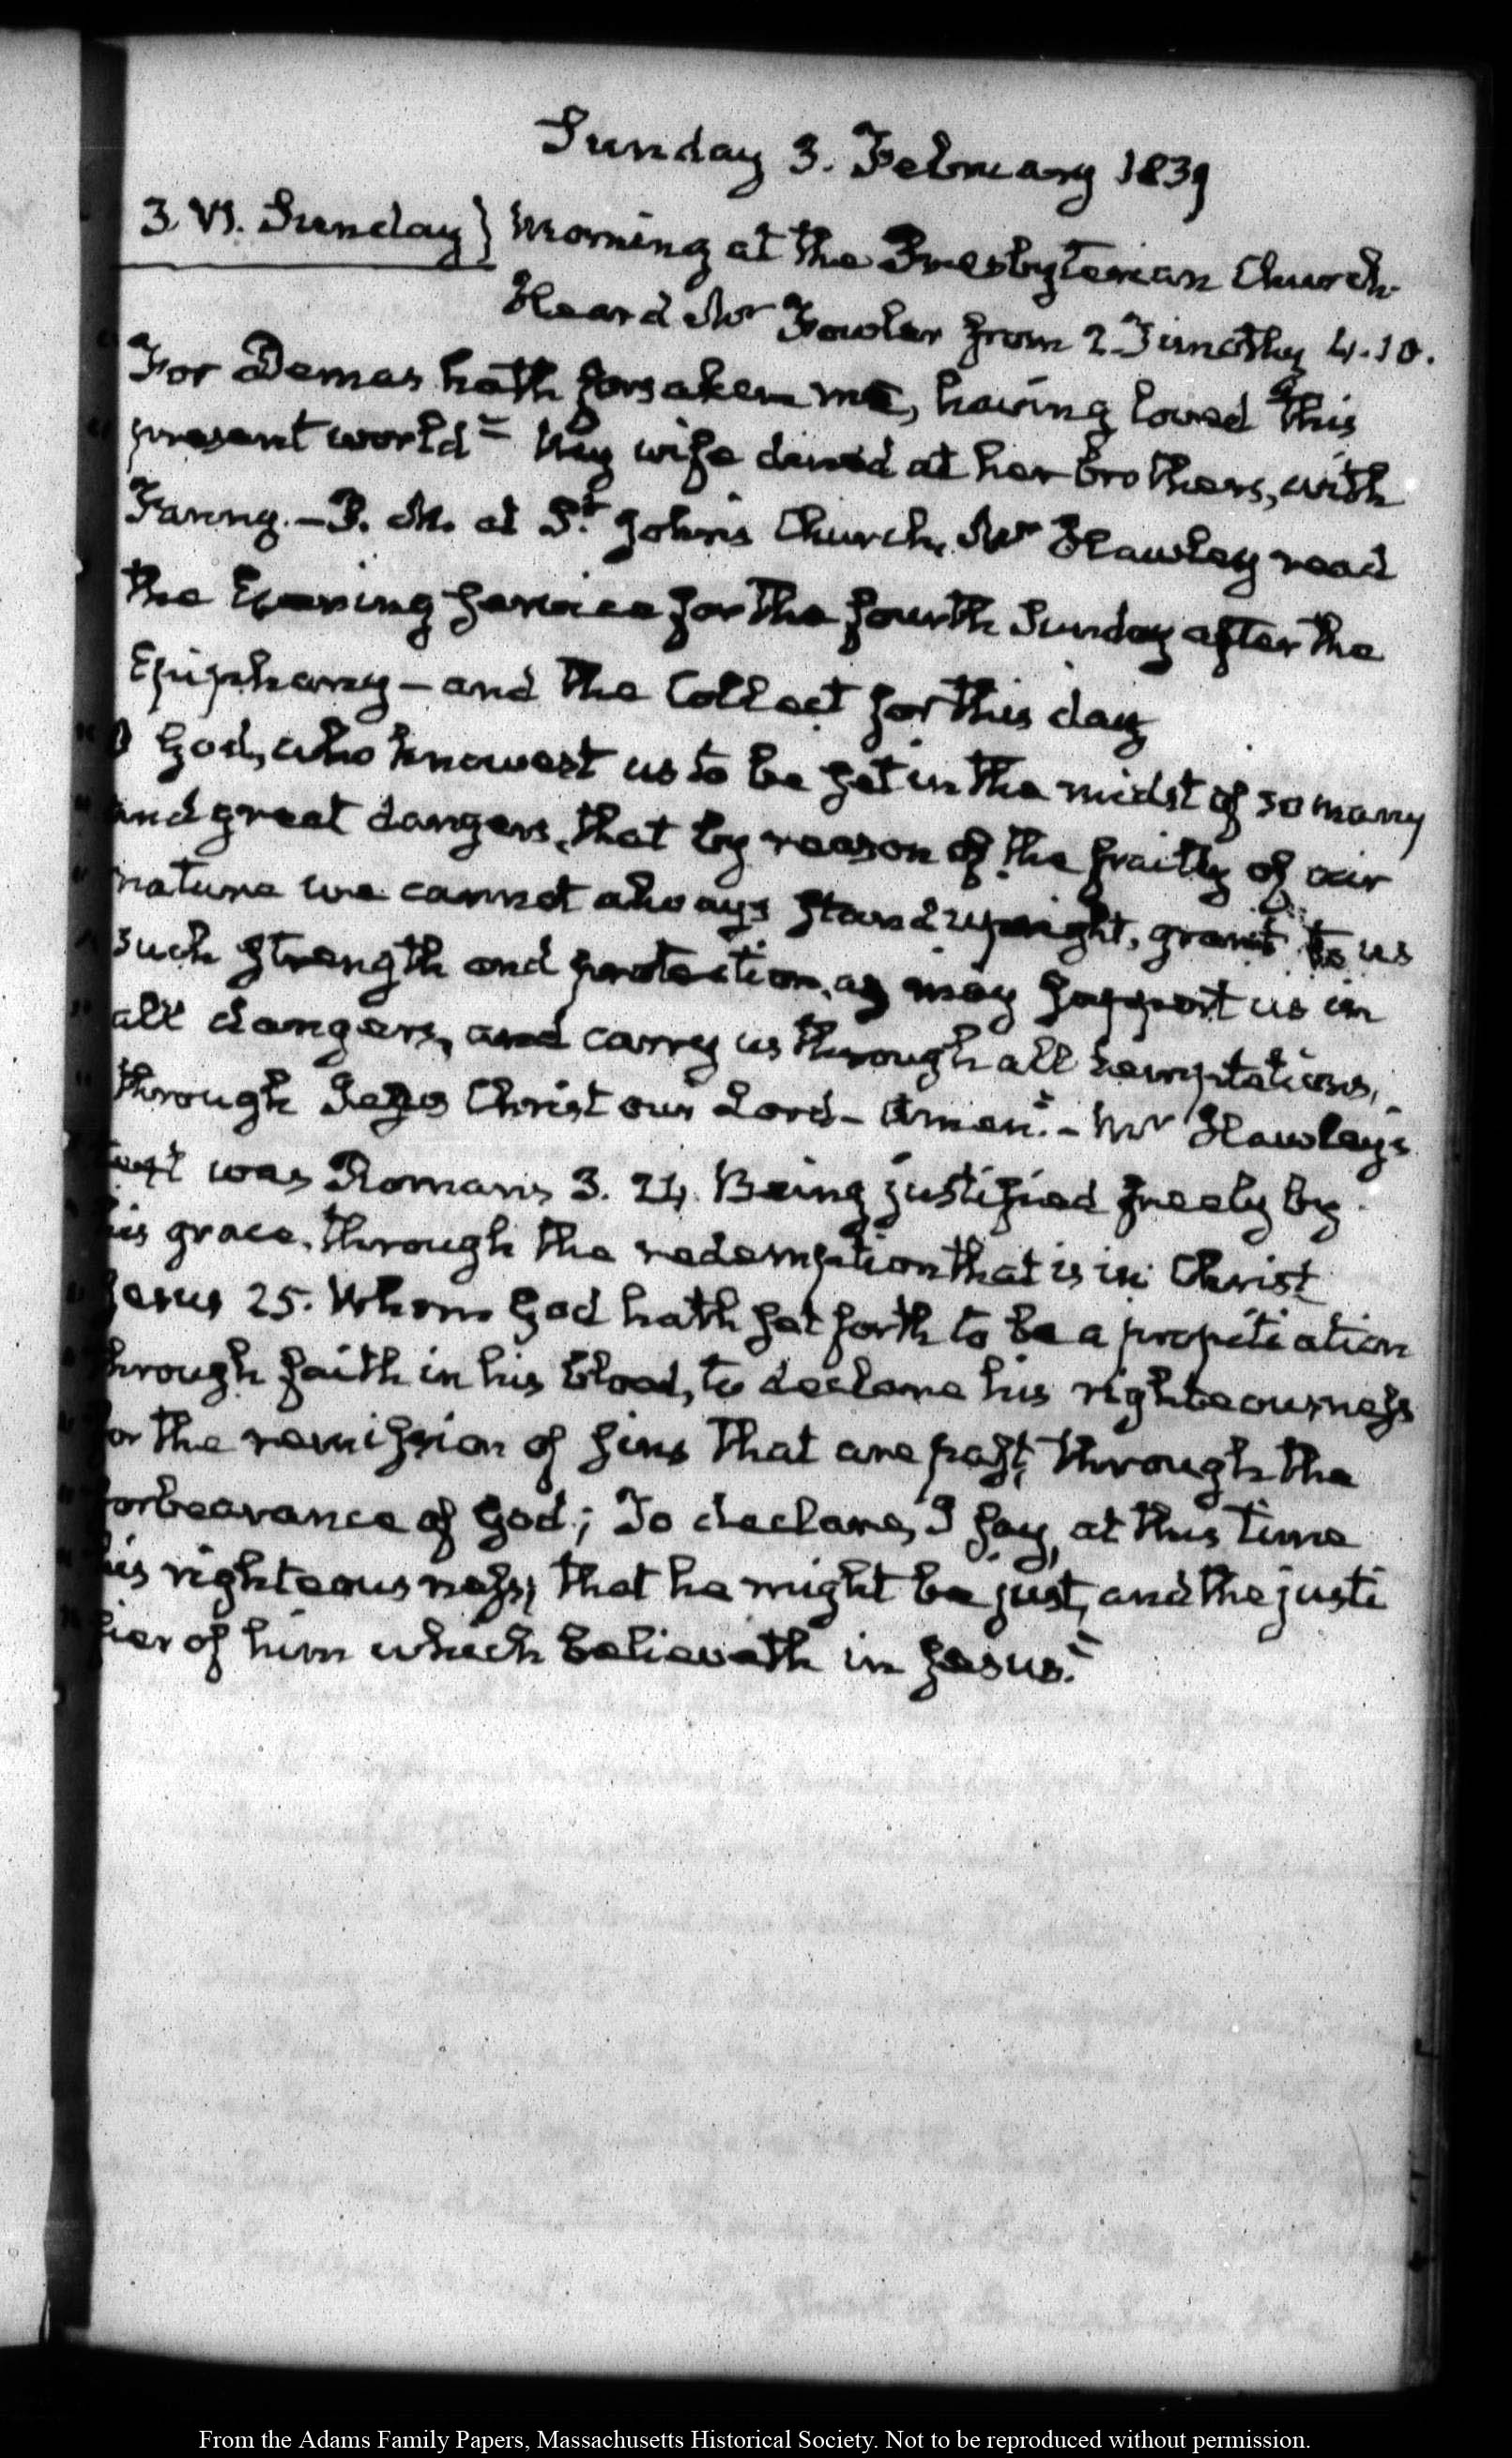 Sunday 3. February 1839
3. VI. Sunday} Morning at the Presbyterian Church
Heard Mr Fowler from 2 Timothy 4.10.
For Demas hath forsaken me, having loved this
present world" My wife dined at her brothers, with
Fanny.—P. M. at St Johns Church, Mr Hawley read
the Evening service for the fourth Sunday after the
Epiphany—and the Collect for this day
O God, who knowest us to be set in the midst of so many
and great dangers, that by reason of the frailty of our
nature we cannot always stand upright, grant to us
such strength and protection, as may support us in
all dangers, and carry us through all temptations,
through Jesus Christ our Lord—Amen."—Mr Hawley's
text was Romans 3. 24. Being justified freely by
his grace, through the redemption that is in Christ
Jesus 25. Whom God hath set forth to be a propitiation
through faith in his blood, to declare his righteousness
for the remission of sins that are past, through the
forbearance of God; To declare, I say, at this time
his righteousness; that he might be just, and the justi
fier of him which believeth in Jesus."
From the Adams Family Papers, Massachusetts Historical Society. Not to be reproduced without permission.